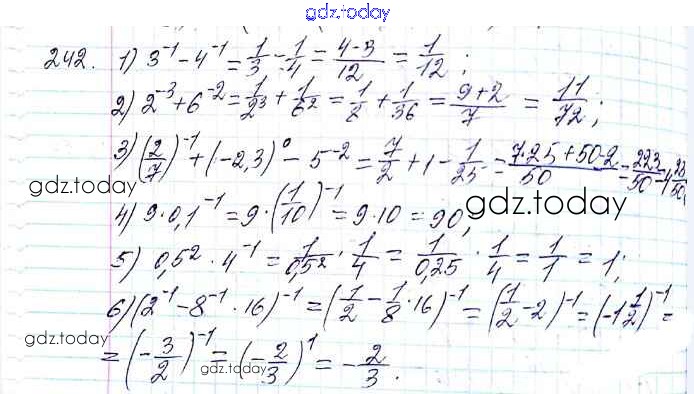 gdz.today
242. 1) 3^-1 - 4^-1 = 1/3 - 1/4 = (4-3)/12 = 1/12;
2) 2^-3 + 6^-2 = 1/2^3 + 1/6^2 = 1/8 + 1/36 = (9+2)/7 = 11/72;
3) (2/7)^-1 + (-2,3)^0 - 5^-2 = 7/2 + 1 - 1/25 = (7·25+50-2)/50 = 223/50 = 4 23/50;
gdz.today
4) 9·0,1^-1 = 9·(1/10)^-1 = 9·10 = 90;
gdz.today
5) 0,5^2 · 4^-1 = 1/0,5^2 · 1/4 = 1/0,25 · 1/4 = 1/1 = 1;
6) (2^-1 - 8^-1 · 16)^-1 = (1/2 - 1/8 · 16)^-1 = (1/2 - 2)^-1 = (-1 1/2)^-1 =
gdz.today
= (-3/2)^-1 = (-2/3)^1 = -2/3.
gdz.today